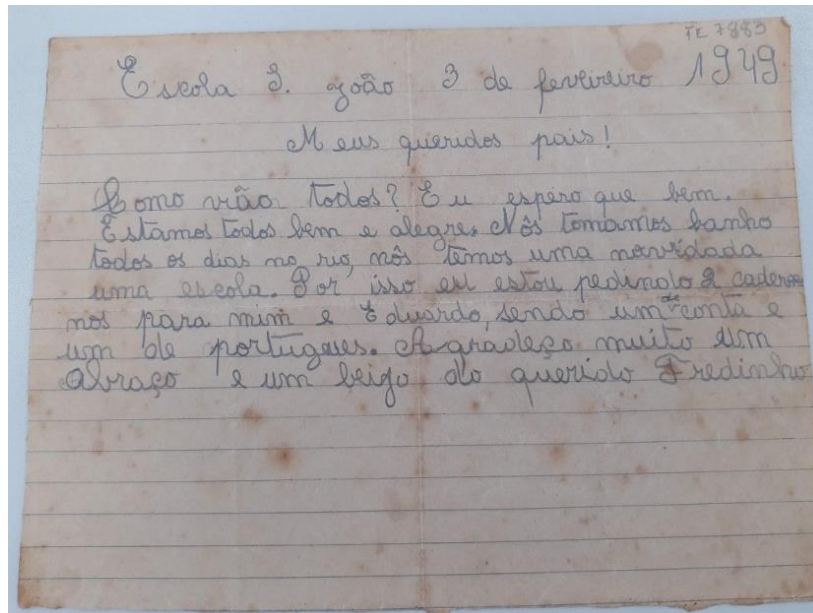 TE 7883
Escola S. João 3 de fevireiro 1949
Meus queridos pais!
Como vião todos? Eu espero que bem.
Estamos todos bem e alegre. Nós tomamos banho
todos os dias no rio, nós temos uma novidada
uma escola. Por isso eu estou pedindo 2 cader
nos para mim e Eduardo, sendo um de conta e
um de portugues. Agradeço muito um
abraço e um beigo do querido Fredinho